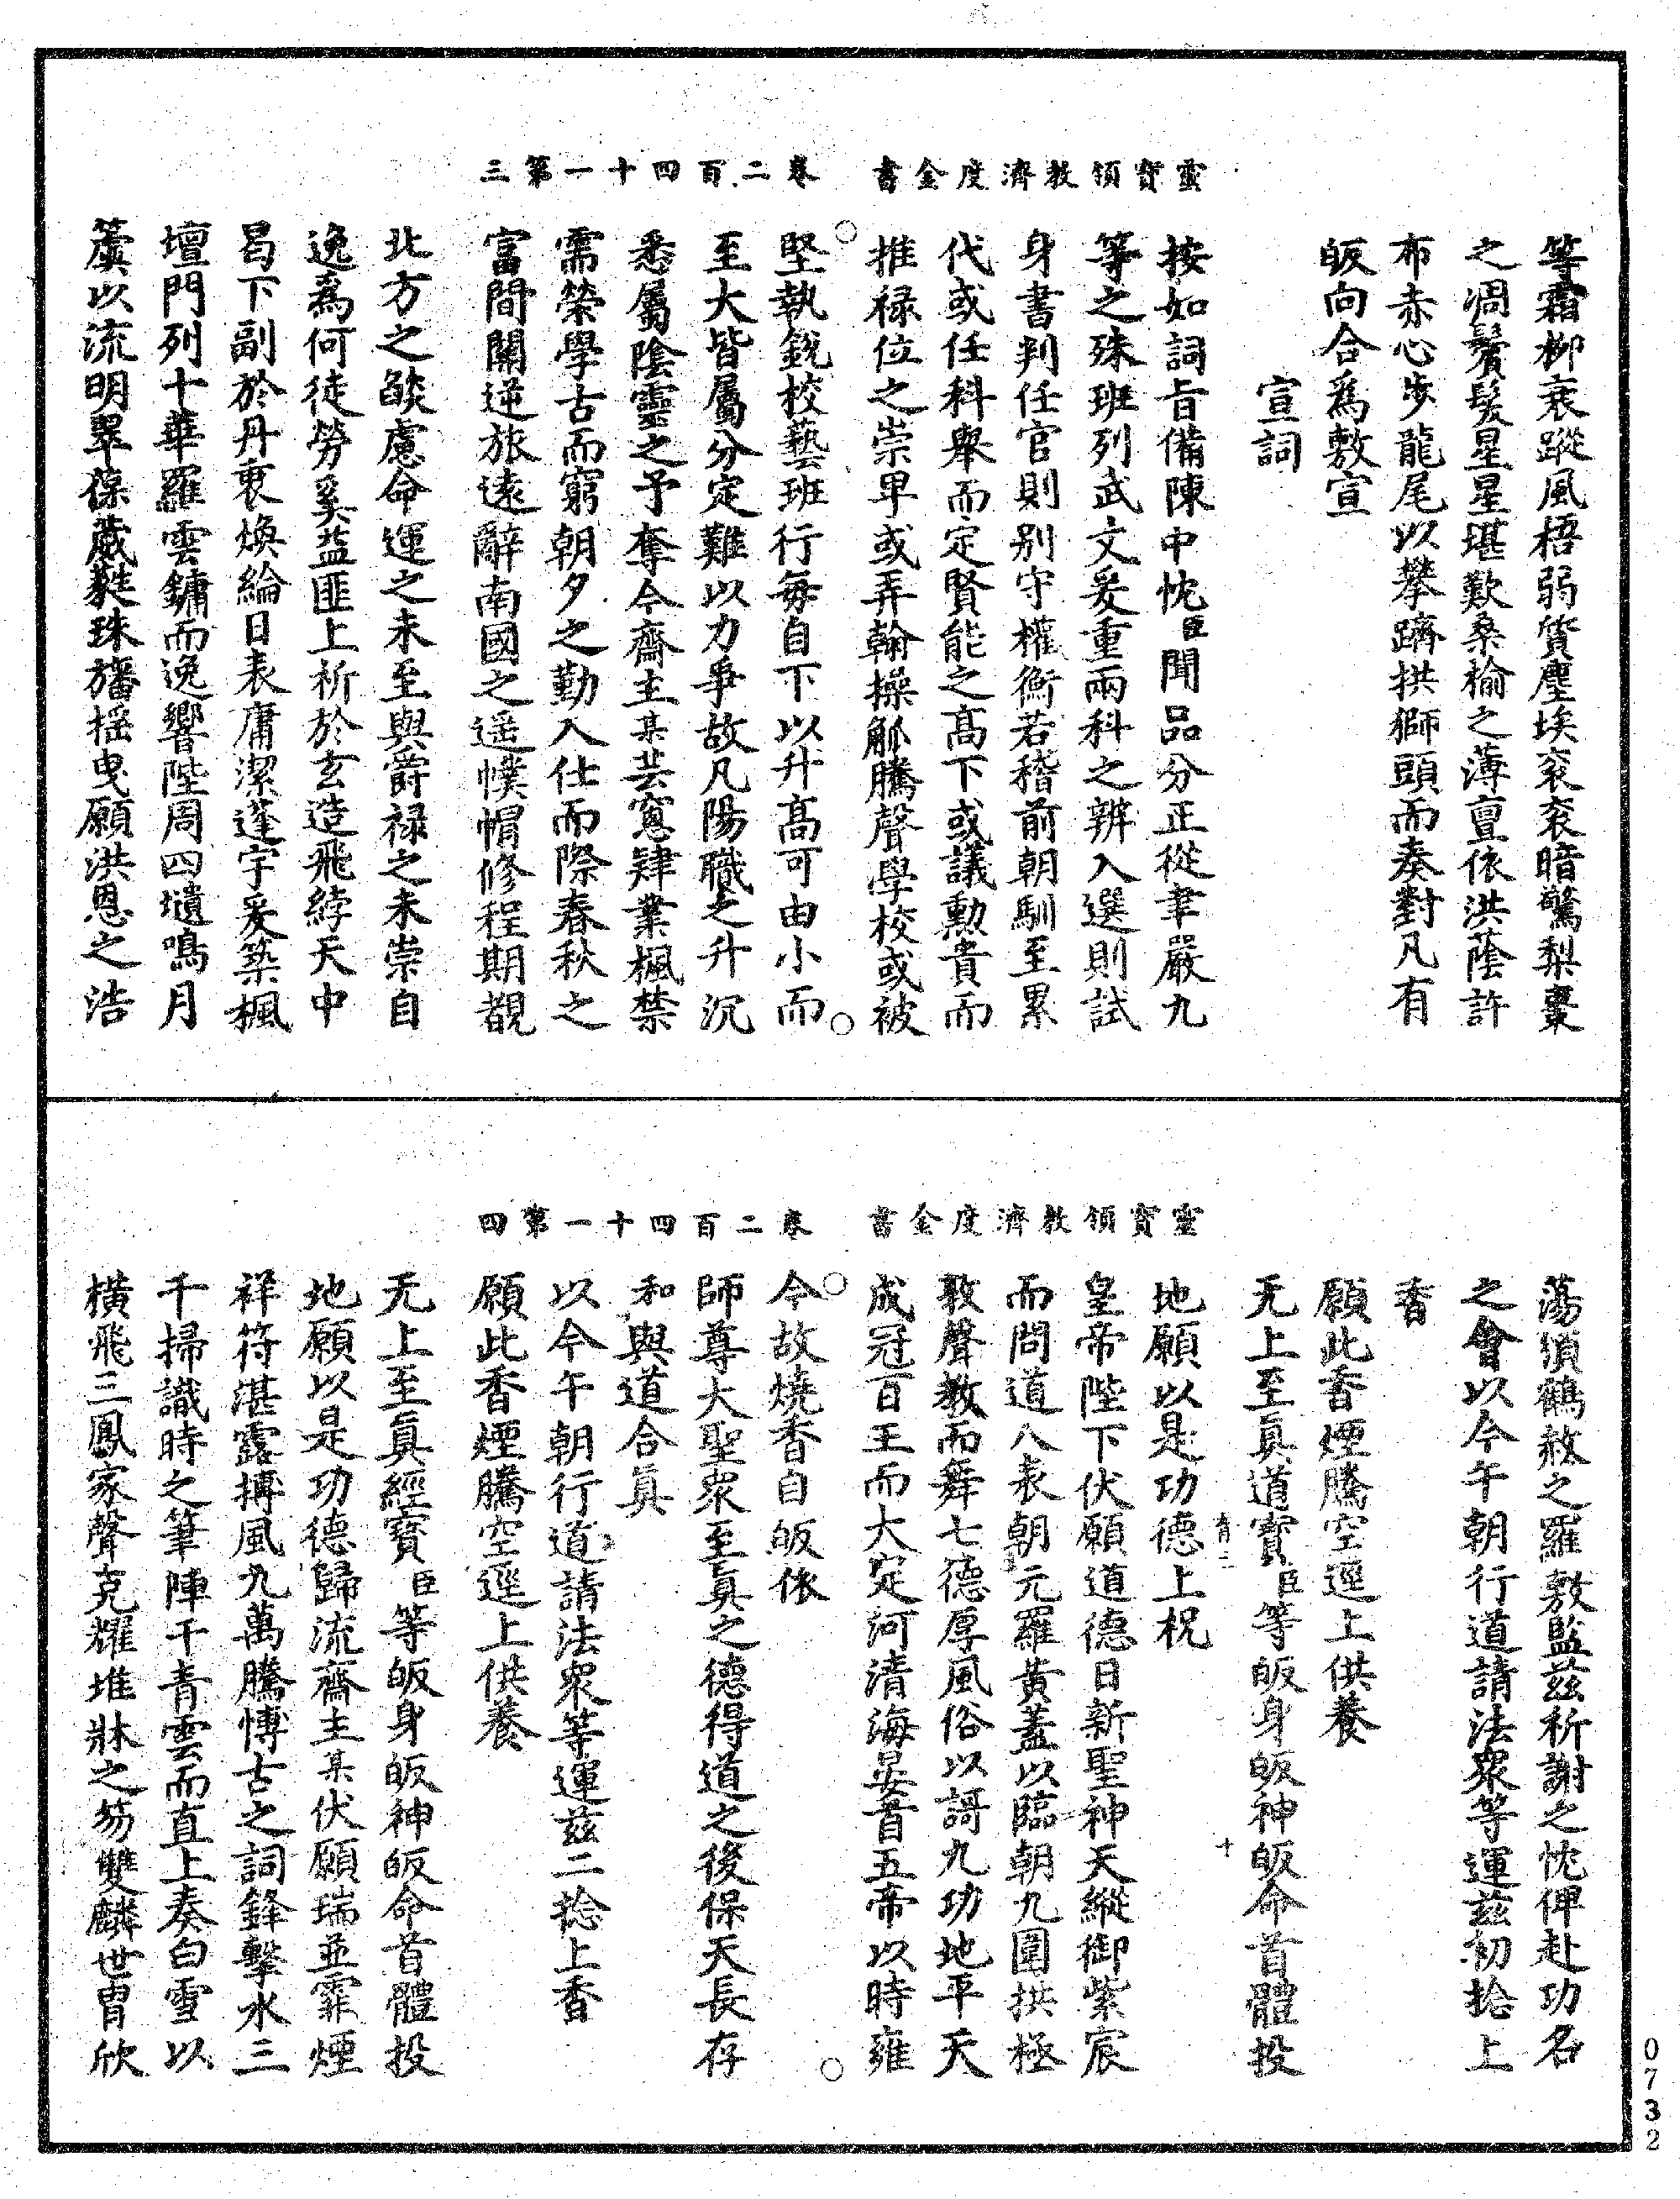 靈寶領教濟度金書 卷二百四十一第三
等霜柳衰蹤風梧弱質塵埃衮衮暗驚梨棗
之凋鬢髮星星堪歎桑榆之薄亶依洪蔭許
布赤心步龍尾以攀躋拱獅頭而奏對凡有
皈向合爲敷宣
宣詞
按如詞旨備陳中忱臣聞品分正從聿嚴九
等之殊班列武文爰重兩科之辨入選則試
身書判任官則別守權衡若稽前朝馴至累
代或任科舉而定賢能之高下或議勳貴而
推禄位之崇卑或弄翰操觚騰聲學校或被
堅執銳校藝班行每自下以升髙可由小而
至大皆屬分定難以力爭故凡陽職之升沉
悉屬陰靈之予奪今齋主某芸窻肄業楓禁
需榮學古而窮朝夕之勤入仕而際春秋之
富間關逆旅遠辭南國之遥幞帽修程期覩
北方之燄慮命運之未至與爵禄之未崇自
逸爲何徒勞奚益匪上祈於玄造飛綍天中
曷下副於丹衷煥綸日表庸潔蓬宇爰築楓
壇門列十華羅雲鏞而逸響陛周四壝鳴月
簴以流明翠葆葳蕤珠旛摇曳願洪恩之浩
靈寶領教濟度金書 卷二百四十一第四
蕩須鶴赦之羅敷監兹祈謝之忱俾赴功名
之會以今午朝行道請法衆等運兹初捻上
香
願此香煙騰空逕上供養
无上至眞道寳臣等皈身皈神皈命首體投
地願以是功德上祝
皇帝陛下伏願道德日新聖神天縱御紫宸
而問道八表朝元羅黃蓋以臨朝九圍拱極
敷聲教而舞七德厚風俗以謌九功地平天
成冠百王而大定河清海晏首五帝以時雍
今故燒香自皈依
師尊大聖衆至眞之德得道之後保天長存
和與道合眞
以今午朝行道請法衆等運兹二捻上香
願此香煙騰空逕上供養
无上至眞經寳臣等皈身皈神皈命首體投
地願以是功德歸流齋主某伏願瑞並霏煙
祥符湛露摶風九萬騰愽古之詞鋒擊水三
千掃識時之筆陣干青雲而直上奏白雪以
橫飛三鳳家聲克耀堆牀之笏雙麟世胄欣
0732